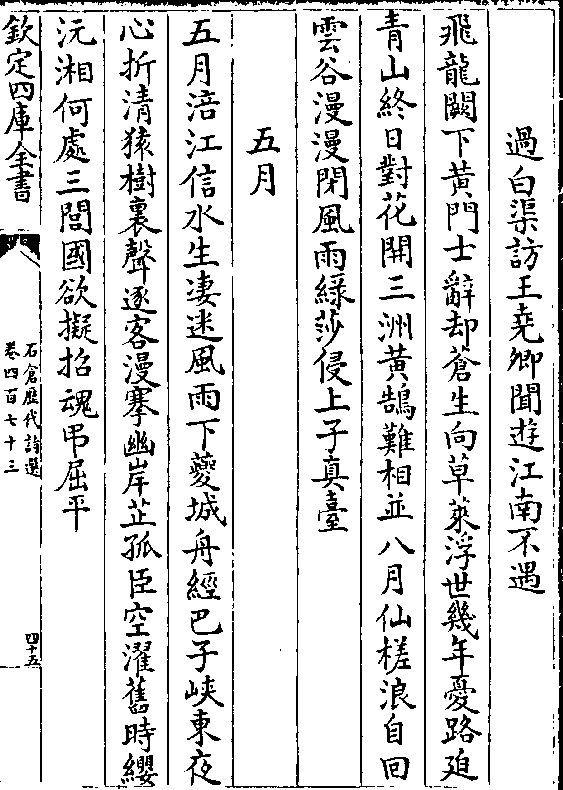 過白渠訪王堯卿聞遊江南不遇
飛龍闕下黄門士辭却蒼生向草萊浮世幾年憂路廹
青山終日對花開三洲黄鵠難相並八月仙槎浪自回
雲谷漫漫閉風雨緑莎侵上子真臺
五月
五月涪江信水生淒迷風雨下夔城舟經巴子峽東夜
心折清猿樹裏聲逐客漫搴幽岸芷孤臣空濯舊時纓
沅湘何處三閭國欲擬招魂弔屈平
欽定四庫全書
石倉歷代詩選
卷四百七十三
四十五